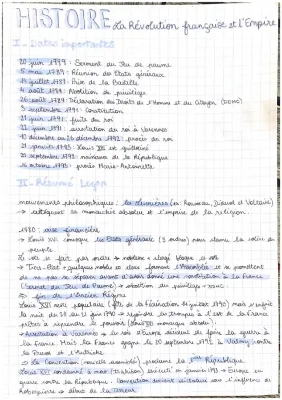 HISTOIRE La Révolution française et l'Empire
I - Dates importantes
20 juin 1789 : Serment du Jeu de paume
5 mai 1789 : Réunion des Etats généraux
14 juillet 1789 : Prise de la Bastille
4 août 1789 : Abolition de privilège
26 août 1789 : Déclaration des Droits de l'Homme et du Citoyen (DDHC)
3 septembre 1791 : Constitution
21 juin 1791 : fuite du roi
22 juin 1791 : arrestation du roi à Varennes
10 décembre au 26 décembre 1792 : procès du roi
21 janvier 1793 : Louis XVI est guillotiné
21 septembre 1792 : naissance de la République
16 octobre 1793 : procès Marie-Antoinette
II - Résumé Leçon
mouvements philosophiques : les lumières (ex: Rousseau, Diderot et Voltaire)
→ critiquent la monarchie absolue et l'emprise de la religion.
crise financière
→ Louis XVI convoque les Etats généraux (3 ordres) pour
peuple
→ Tiers-Etat + quelques nobles et forment l'Assemblée et se promettent
de ne pas se séparer avant d'avoir donné une constitution à la France
(serment du Jeu de Paume) → abolition des privilèges +
fin de l'Ancien Régime
Louis XVI reste populaire (fête de la Fédération 14 juillet 1790) mais
la nuit du 20 au 21 juin → rejoindre les troupes à l'est de la France
prêtes à reprendre le pouvoir (Louis XVI monarque absolu)
→ Arrestation à Varennes → les rois d'Europe de faire la guerre à
la France. Mais la France gagne le 20 septembre 1792 à Valmy contre
la Prusse et l'Autriche.
→ La Convention (nouvelle assemblée) proclame la République
Louis XVI condamné à mort (trahison) exécuté en janvier 1793 → Europe en
guerre contre la République. Convention sous l'influence de
Robespierre → début de la terreur